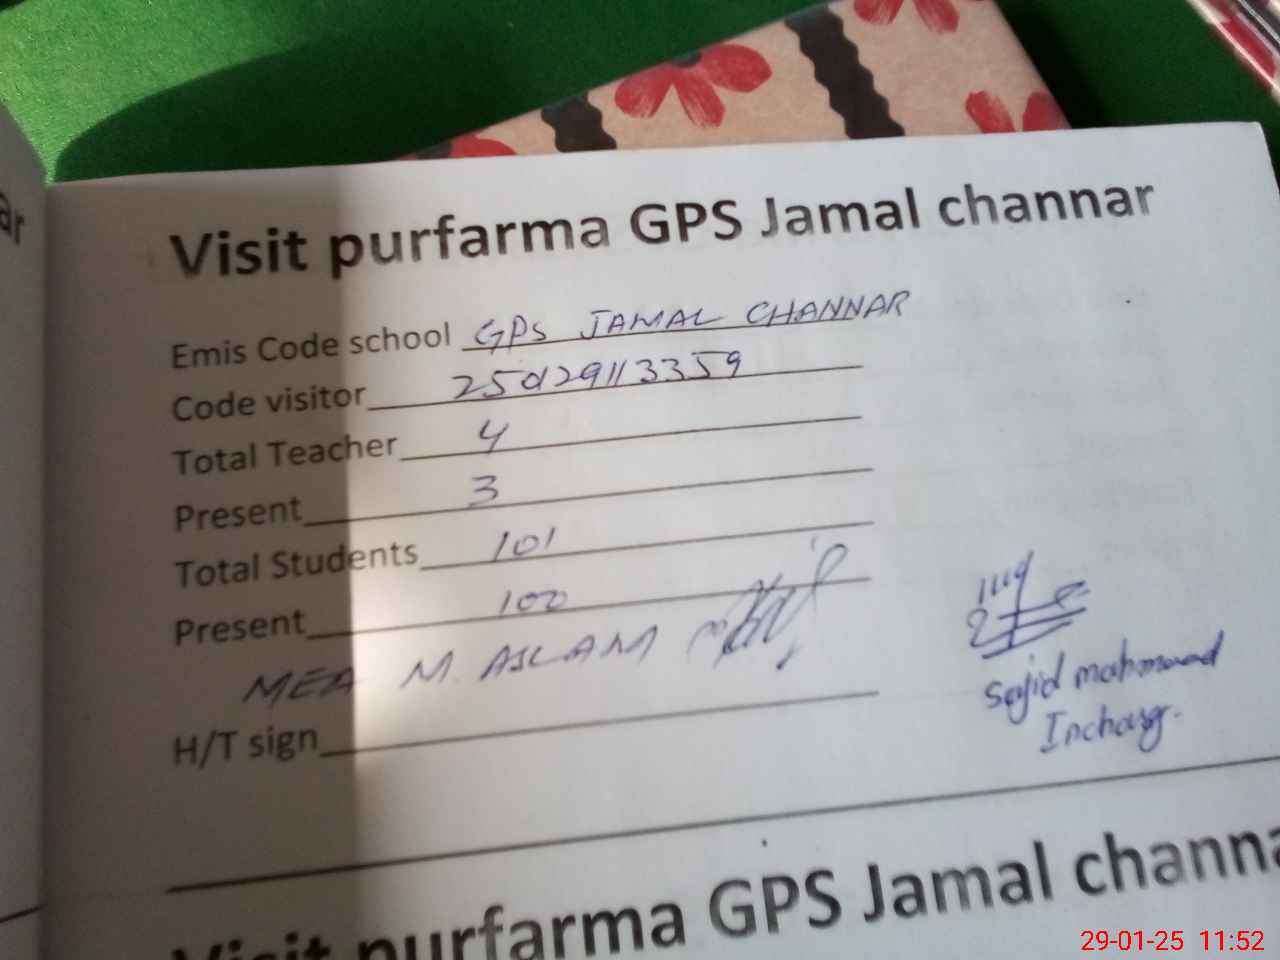 ar
Visit purfarma GPS Jamal channar
Emis Code school GPS JAMAL CHANNAR
Code visitor 250129113359
Total Teacher 4
Present 3
Total Students 101
Present 100
MEA M. ASLAM
Sajid mahmood
Incharg.
H/T sign
Visit purfarma GPS Jamal channa
29-01-25 11:52